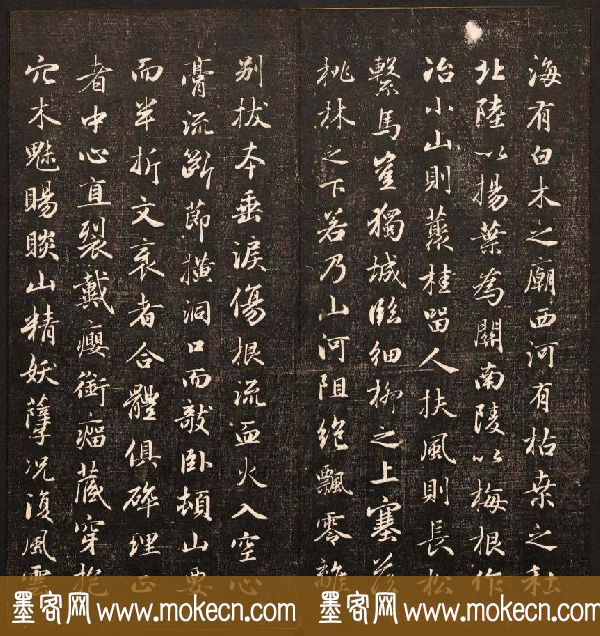 海有白木之廟西河有枯桑之社
北陸以揚葉為關南陵以梅根作
冶小山則藂桂留人扶風則長松
繫馬豈獨城臨細柳之上塞落
桃林之下若乃山河阻絕飄零離
別拔本垂淚傷根流血火入空心
膏流斷節橫洞口而敧臥頓山要
而半折文衺者合體俱碎理正
者中心直裂戴癭銜瘤藏穿抱
穴木魅賜睒山精妖孽況復風雲
墨客网 www.mokecn.com 墨客网 www.mokecn.com